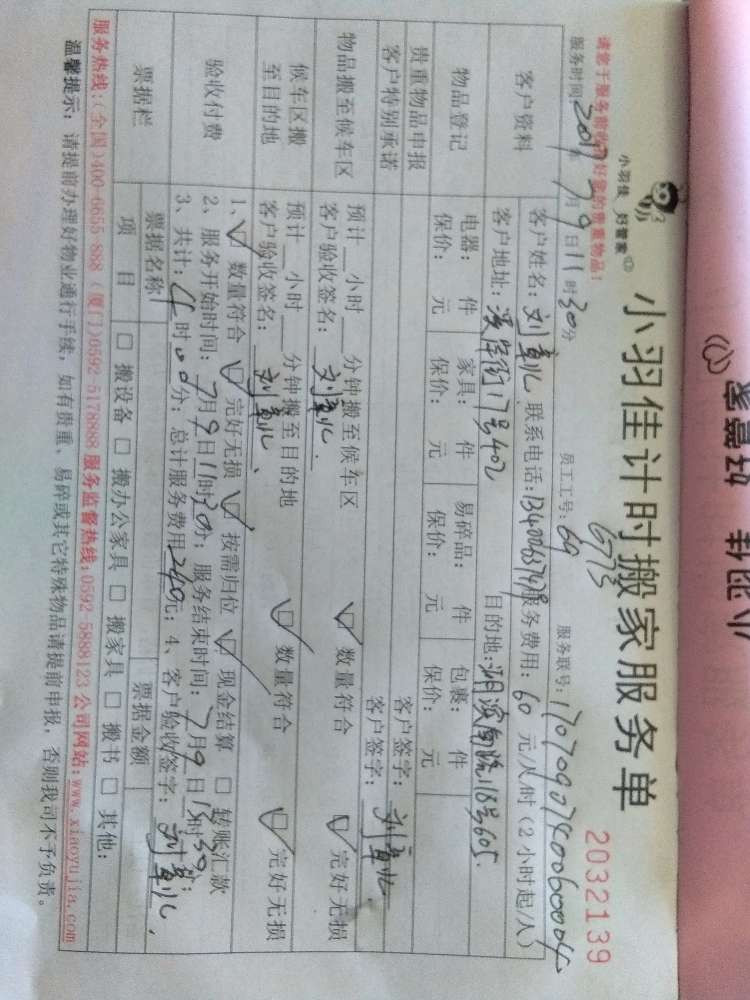 小羽佳 好管家
小羽佳计时搬家服务单
2032139
请您于服务前保管好您的贵重物品!
服务时间:2017年7月9日11时30分 员工工号:69 6773 服务联号:
客户资料
客户姓名:刘章北 联系电话: 服务费用:60元/人/时(2小时起/人)
客户地址: 17号402 目的地:湖滨南路118号605
物品登记
电器: 件 家具: 件 易碎品: 件 包裹: 件
保价: 元 保价: 元 保价: 元 保价: 元
贵重物品申报 客户签字:
客户特别承诺 客户签字:
物品搬至候车区
预计__小时__分钟搬至候车区 数量符合 完好无损
客户验收签名:
候车区搬至目的地
预计__小时__分钟搬至目的地 数量符合 完好无损
客户验收签名:
验收付费
1、 数量符合 完好无损 按需归位 现金结算 转账汇款
2、服务开始时间:7月9日11时30分;服务结束时间:7月9日15时30分;
3、共计:4时00分;总计服务费用240元;4、客户验收签字:
票据栏
票据名称 票据金额
项目 □ 搬设备 □ 搬办公家具 □ 搬家具 □ 搬书 □ 其他:
服务热线:(全国)400-6655 888 (厦门)0592-5178888 服务监督热线:0592-5888123 公司网站:www.xiaoyujia.com
温馨提示: 请提前办理好物业通行手续,如有贵重、易碎或其它特殊物品请提前申报,否则我司不予负责。